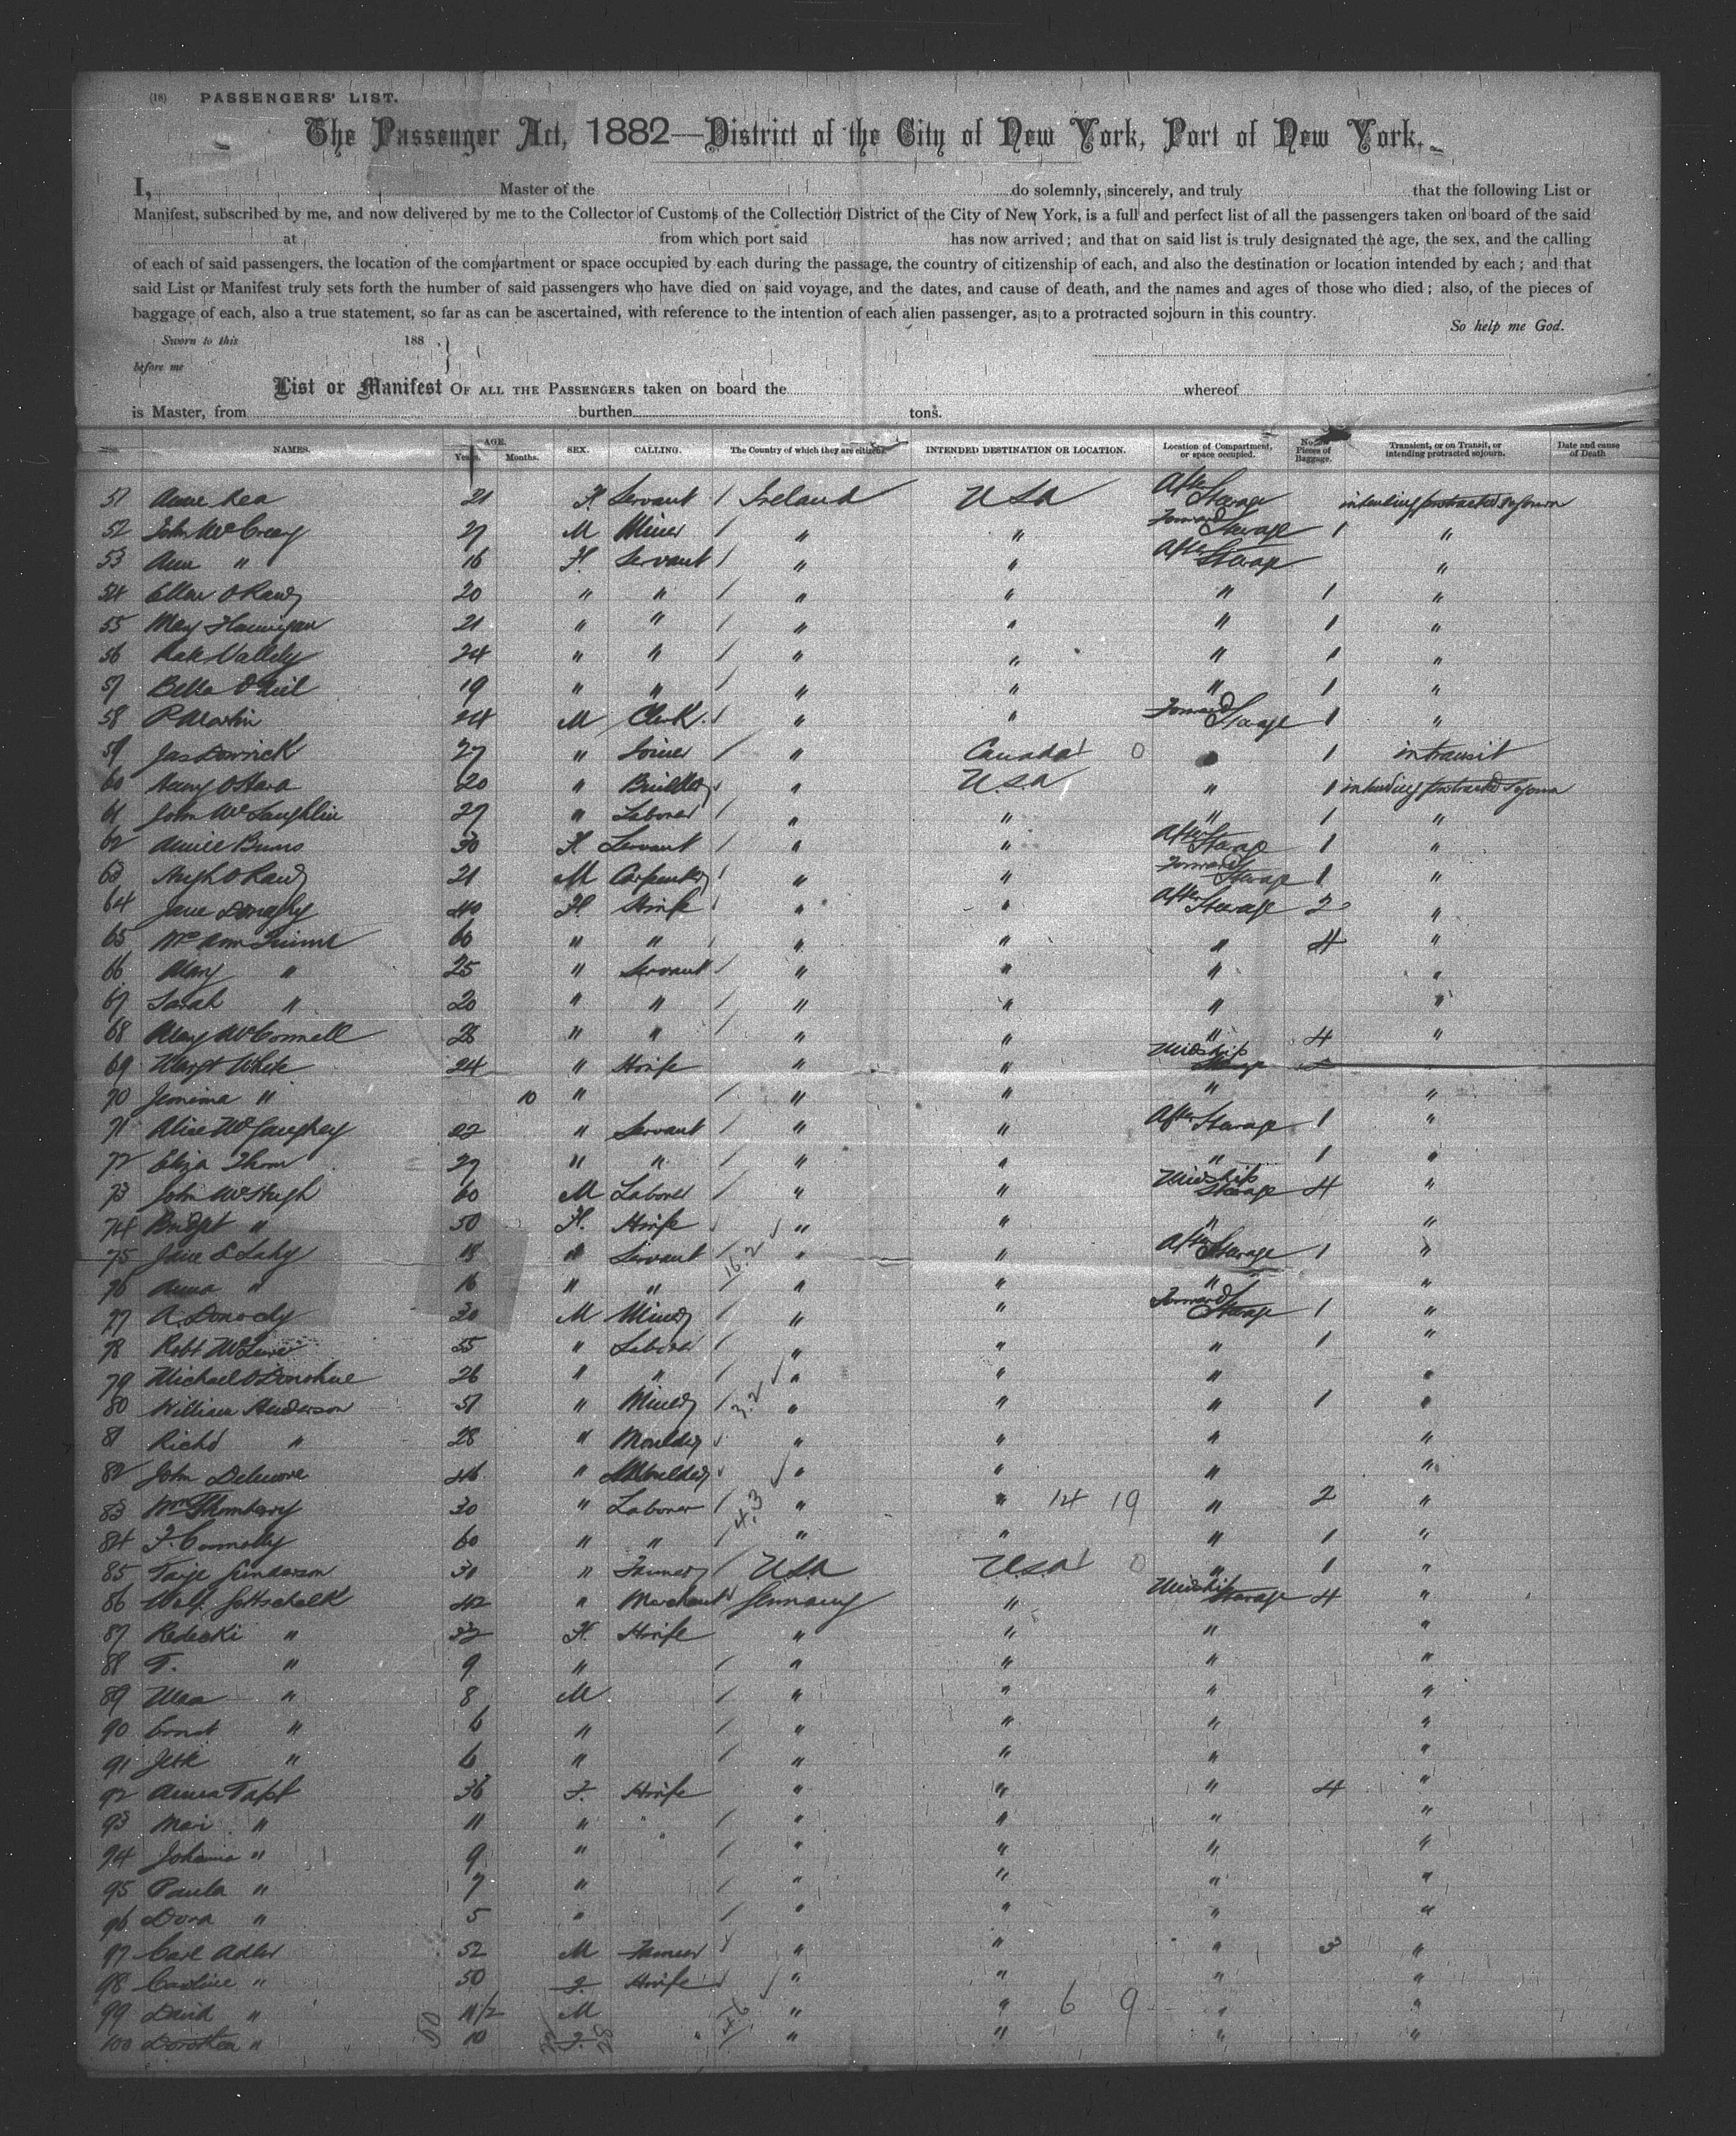 (18) PASSENGERS' LIST.
The Passenger Act, 1882—District of the City of New York, Port of New York.
I, Master of the do solemnly, sincerely, and truly that the following List or
Manifest, subscribed by me, and now delivered by me to the Collector of Customs of the Collection District of the City of New York, is a full and perfect list of all the passengers taken on board of the said
at from which port said has now arrived; and that on said list is truly designated the age, the sex, and the calling
of each of said passengers, the location of the compartment or space occupied by each during the passage, the country of citizenship of each, and also the destination or location intended by each; and that
said List or Manifest truly sets forth the number of said passengers who have died on said voyage, and the dates, and cause of death, and the names and ages of those who died; also, of the pieces of
baggage of each, also a true statement, so far as can be ascertained, with reference to the intention of each alien passenger, as to a protracted sojourn in this country.
So help me God.
Sworn to this 188
before me
List or Manifest OF ALL THE PASSENGERS taken on board the whereof
is Master, from burthen tons.
NAMES. AGE. Years. Months. SEX. CALLING. The Country of which they are citizens. INTENDED DESTINATION OR LOCATION. Location of Compartment, or space occupied. No. of Pieces of Baggage. Transient, or on Transit, or intending protracted sojourn. Date and cause of Death
51 Anne Rea 21 F. Servant / Ireland USA After Steerage intending protracted sojourn
52 John McCreey 27 M Miner / " " Forward Steerage 1 "
53 Ann " 16 F. Servant / " " After Steerage "
54 Ellen O'Rawe 20 " " / " " " 1 "
55 Mary Hannigan 21 " " / " " " 1 "
56 Kate Vallely 24 " " / " " " 1 "
57 Bella O'Neil 19 " " / " " " 1 "
58 P Martin 24 M Clerk / " " Forward Steerage 1 "
59 Jas 27 " Joiner / " Canada 0 " 1 in transit
60 Henry O'Hara 20 " Builder / " U.S.A " 1 intending protracted sojourn
61 John McLaughlin 27 " Laborer / " " " 1 "
62 Annie Burns 30 F. Servant / " " After Steerage 1 "
63 Hugh O'Rawe 21 M Carpenter / " " Forward Steerage 1 "
64 Jane Donaghy 40 F. H'wife " " After Steerage 2 "
65 Mrs Ann 60 " " / " " " 4 "
66 Mary " 25 " Servant / " " " "
67 Sarah " 20 " " / " " " "
68 Mary McConnell 28 " " / " " " 4 "
69 Margt White 24 " H'wife " " Midship Steerage
70 Jemima " 10 " / " " " "
71 Alice McGaughey 22 " Servant / " " After Steerage 1 "
72 Eliza Thom 27 " " / " " " 1 "
73 John McHugh 60 M Laborer / " " Midship Steerage 4 "
74 Bridget " 50 F. H'wife " " " "
75 Jane 18 " Servant / 16.2 " " After Steerage 1 "
76 Anna " 16 " " / " " " "
77 A. 30 M Miner / " " Forward Steerage 1 "
78 Robt 55 " Laborer / " " " 1 "
79 Michael O'Donohue 26 " " / " " " "
80 William Anderson 51 " Miner / 3.2 " " " 1 "
81 Richd " 28 " Moulder " " " "
82 John Delmore 46 " Moulder " " " "
83 Wm Thornberry 30 " Laborer / 4.3 " " 14 19 " 2 "
84 F. Connolly 60 " " / " " " 1 "
85 Gunderson 30 " Farmer / USA U.S.A 0 " 1 "
86 Wolf Gottschalk 42 " Merchant Germany " Midship Steerage 4 "
87 Redecki " 32 F. H'wife " " " "
88 T. " 9 " / " " " "
89 " 8 M / " " " "
90 Ernst " 6 " / " " " "
91 " 6 " / " " " "
92 Anna 36 F. H'wife " " " 4 "
93 Mari " 11 " / " " " "
94 Johanna " 9 " / " " " "
95 Paula " 7 " / " " " "
96 Dora " 5 " / " " " "
97 Carl Adler 52 M Farmer " " " 3 "
98 Caroline " 50 F. H'wife " " " "
99 David " 11/2 M " " 6 9 " "
100 Dorothea " 10 F. " " " "